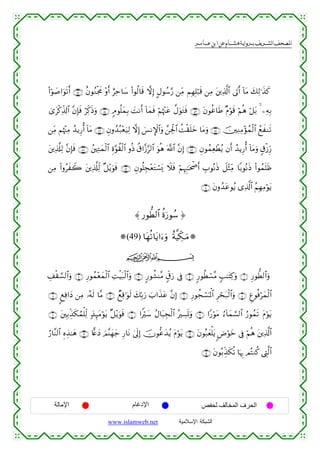 المصحف الشريف برواية هشام عن ابن عامر
كَذَٰلِكَ مَآ أَتَى ٱلَّذِينَ مِن قَبْلِهِم مِّن رَّسُولٍ إِلَّا قَالُوا۟ سَاحِرٌ أَوْ مَجْنُونٌ ۝ أَتَوَاصَوْا۟
بِهِۦ ۚ بَلْ هُمْ قَوْمٌ طَاغُونَ ۝ فَتَوَلَّ عَنْهُمْ فَمَآ أَنتَ بِمَلُومٍ ۝ وَذَكِّرْ فَإِنَّ ٱلذِّكْرَىٰ
تَنفَعُ ٱلْمُؤْمِنِينَ ۝ وَمَا خَلَقْتُ ٱلْجِنَّ وَٱلْإِنسَ إِلَّا لِيَعْبُدُونِ ۝ مَآ أُرِيدُ مِنْهُم مِّن
رِّزْقٍ وَمَآ أُرِيدُ أَن يُطْعِمُونِ ۝ إِنَّ ٱللَّهَ هُوَ ٱلرَّزَّاقُ ذُو ٱلْقُوَّةِ ٱلْمَتِينُ ۝ فَإِنَّ لِلَّذِينَ
ظَلَمُوا۟ ذَنُوبًا مِّثْلَ ذَنُوبِ أَصْحَٰبِهِمْ فَلَا يَسْتَعْجِلُونِ ۝ فَوَيْلٌ لِّلَّذِينَ كَفَرُوا۟ مِن
يَوْمِهِمُ ٱلَّذِى يُوعَدُونَ ۝
﴿ سُورَةُ ٱلطُّورِ ﴾
مَكِّيَّةٌ وَءَايَاتُهَا (49)
بِسْمِ ٱللَّهِ ٱلرَّحْمَٰنِ ٱلرَّحِيمِ
وَٱلطُّورِ ۝ وَكِتَٰبٍ مَّسْطُورٍ ۝ فِى رَقٍّ مَّنشُورٍ ۝ وَٱلْبَيْتِ ٱلْمَعْمُورِ ۝ وَٱلسَّقْفِ
ٱلْمَرْفُوعِ ۝ وَٱلْبَحْرِ ٱلْمَسْجُورِ ۝ إِنَّ عَذَابَ رَبِّكَ لَوَٰقِعٌ ۝ مَّا لَهُۥ مِن دَافِعٍ ۝
يَوْمَ تَمُورُ ٱلسَّمَآءُ مَوْرًا ۝ وَتَسِيرُ ٱلْجِبَالُ سَيْرًا ۝ فَوَيْلٌ يَوْمَئِذٍ لِّلْمُكَذِّبِينَ ۝
ٱلَّذِينَ هُمْ فِى خَوْضٍ يَلْعَبُونَ ۝ يَوْمَ يُدَعُّونَ إِلَىٰ نَارِ جَهَنَّمَ دَعًّا ۝ هَٰذِهِ ٱلنَّارُ
ٱلَّتِى كُنتُم بِهَا تُكَذِّبُونَ ۝
الحرف المخالف لحفص الإدغام الإمالة
الشبكة الإسلامية www.islamweb.net